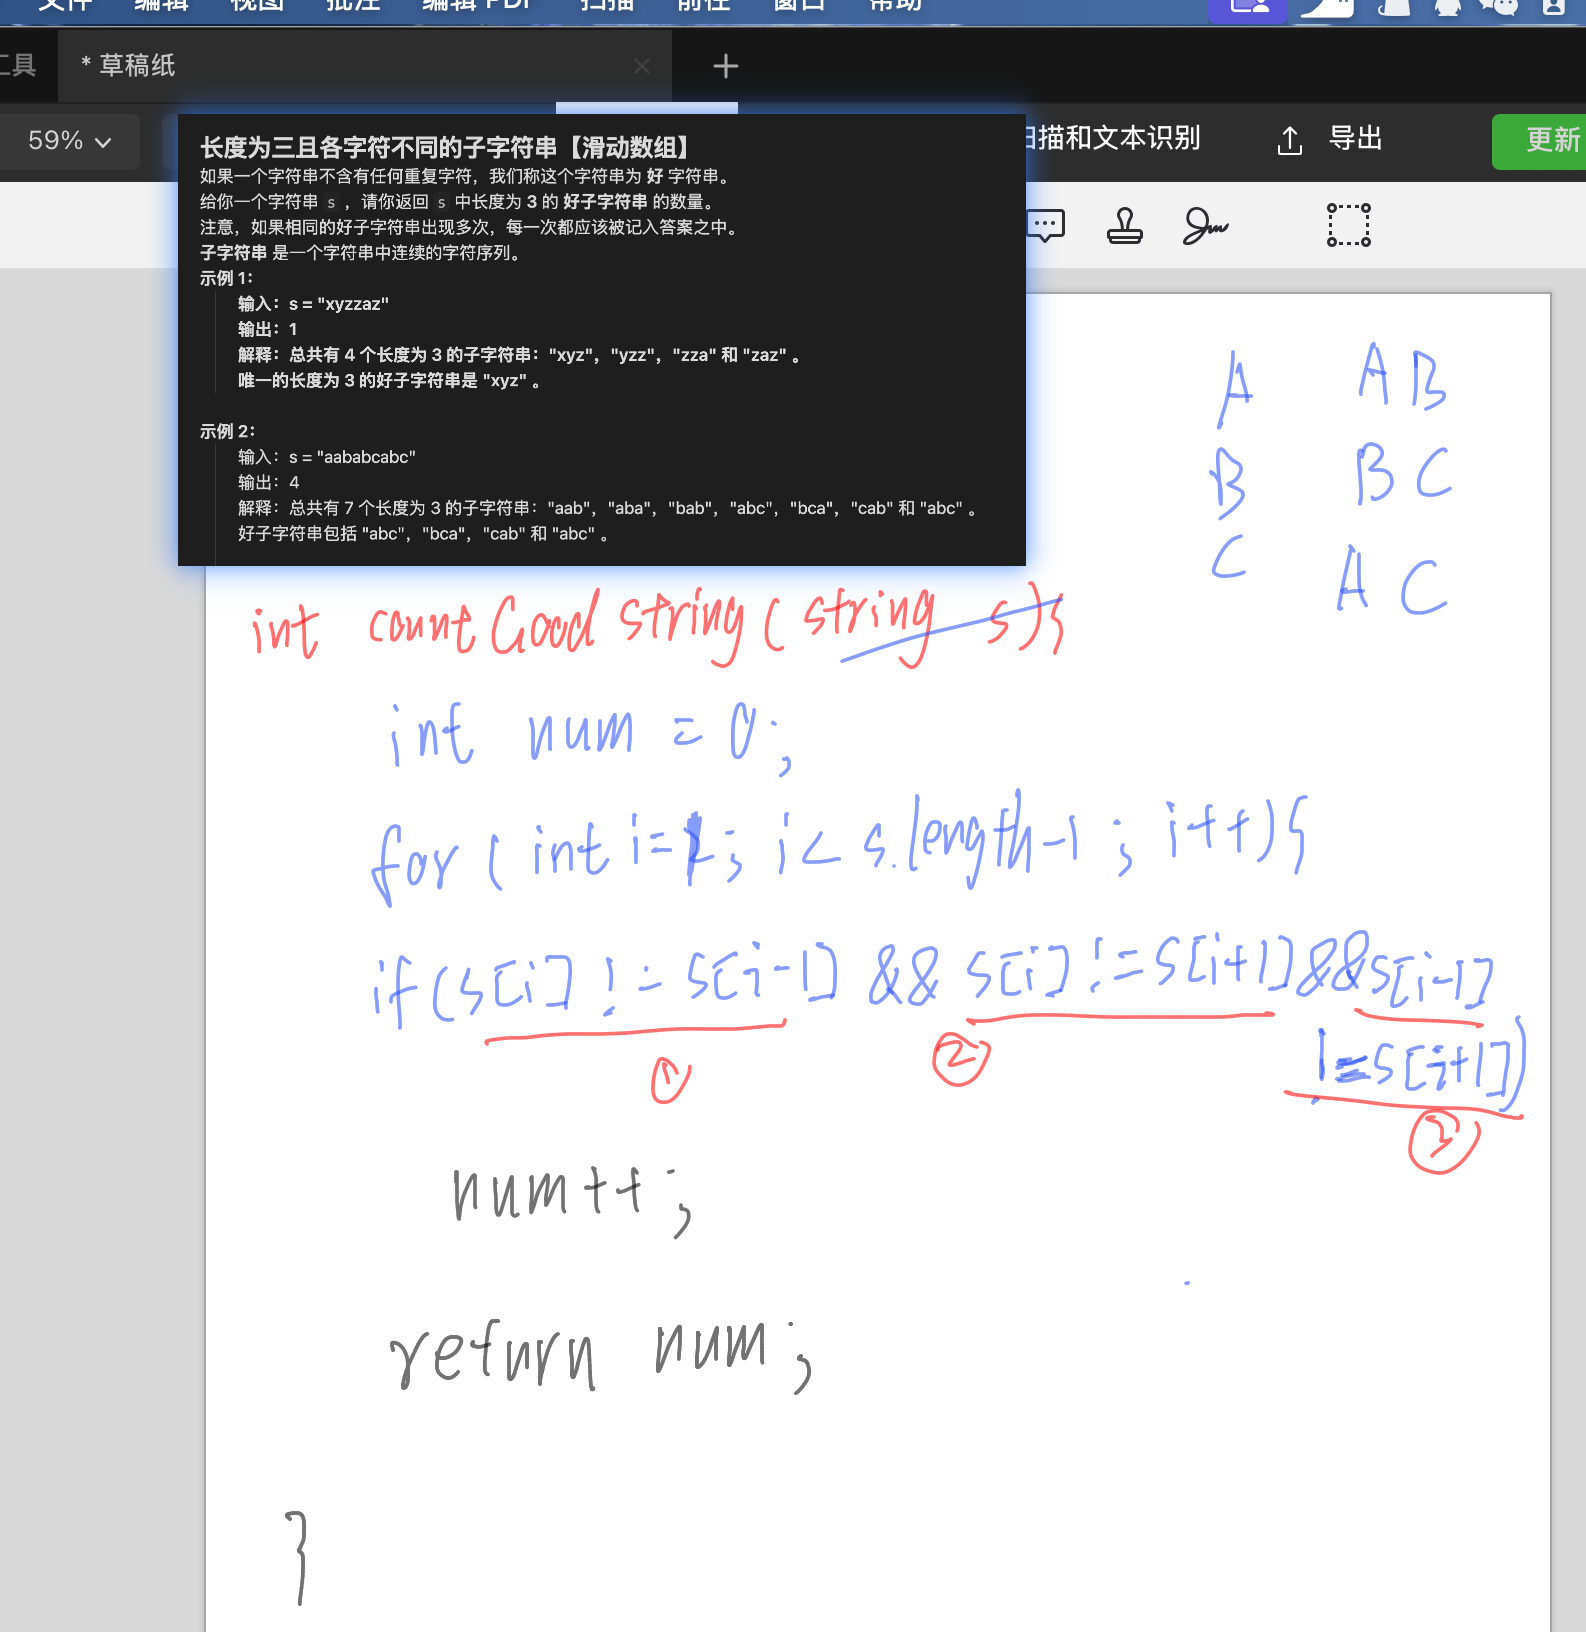 文件 编辑 视图 批注 编辑 PDF 扫描 前往 窗口 帮助
工具 * 草稿纸
59% 扫描和文本识别 导出 更新
长度为三且各字符不同的子字符串【滑动数组】
如果一个字符串不含有任何重复字符，我们称这个字符串为 好 字符串。
给你一个字符串 s ，请你返回 s 中长度为 3 的 好子字符串 的数量。
注意，如果相同的好子字符串出现多次，每一次都应该被记入答案之中。
子字符串 是一个字符串中连续的字符序列。
示例 1：
输入：s = "xyzzaz"
输出：1
解释：总共有 4 个长度为 3 的子字符串："xyz"，"yzz"，"zza" 和 "zaz" 。
唯一的长度为 3 的好子字符串是 "xyz" 。
示例 2：
输入：s = "aababcabc"
输出：4
解释：总共有 7 个长度为 3 的子字符串："aab"，"aba"，"bab"，"abc"，"bca"，"cab" 和 "abc" 。
好子字符串包括 "abc"，"bca"，"cab" 和 "abc" 。
A AB
B BC
C AC
int countGood string ( string s){
int num = 0;
for ( int i=1; i< s.length-1 ; i++){
if(s[i] != s[i-1] && s[i] != s[i+1]&&s[i-1]
!=s[i+1])
① ② ③
num++;
return num;
}